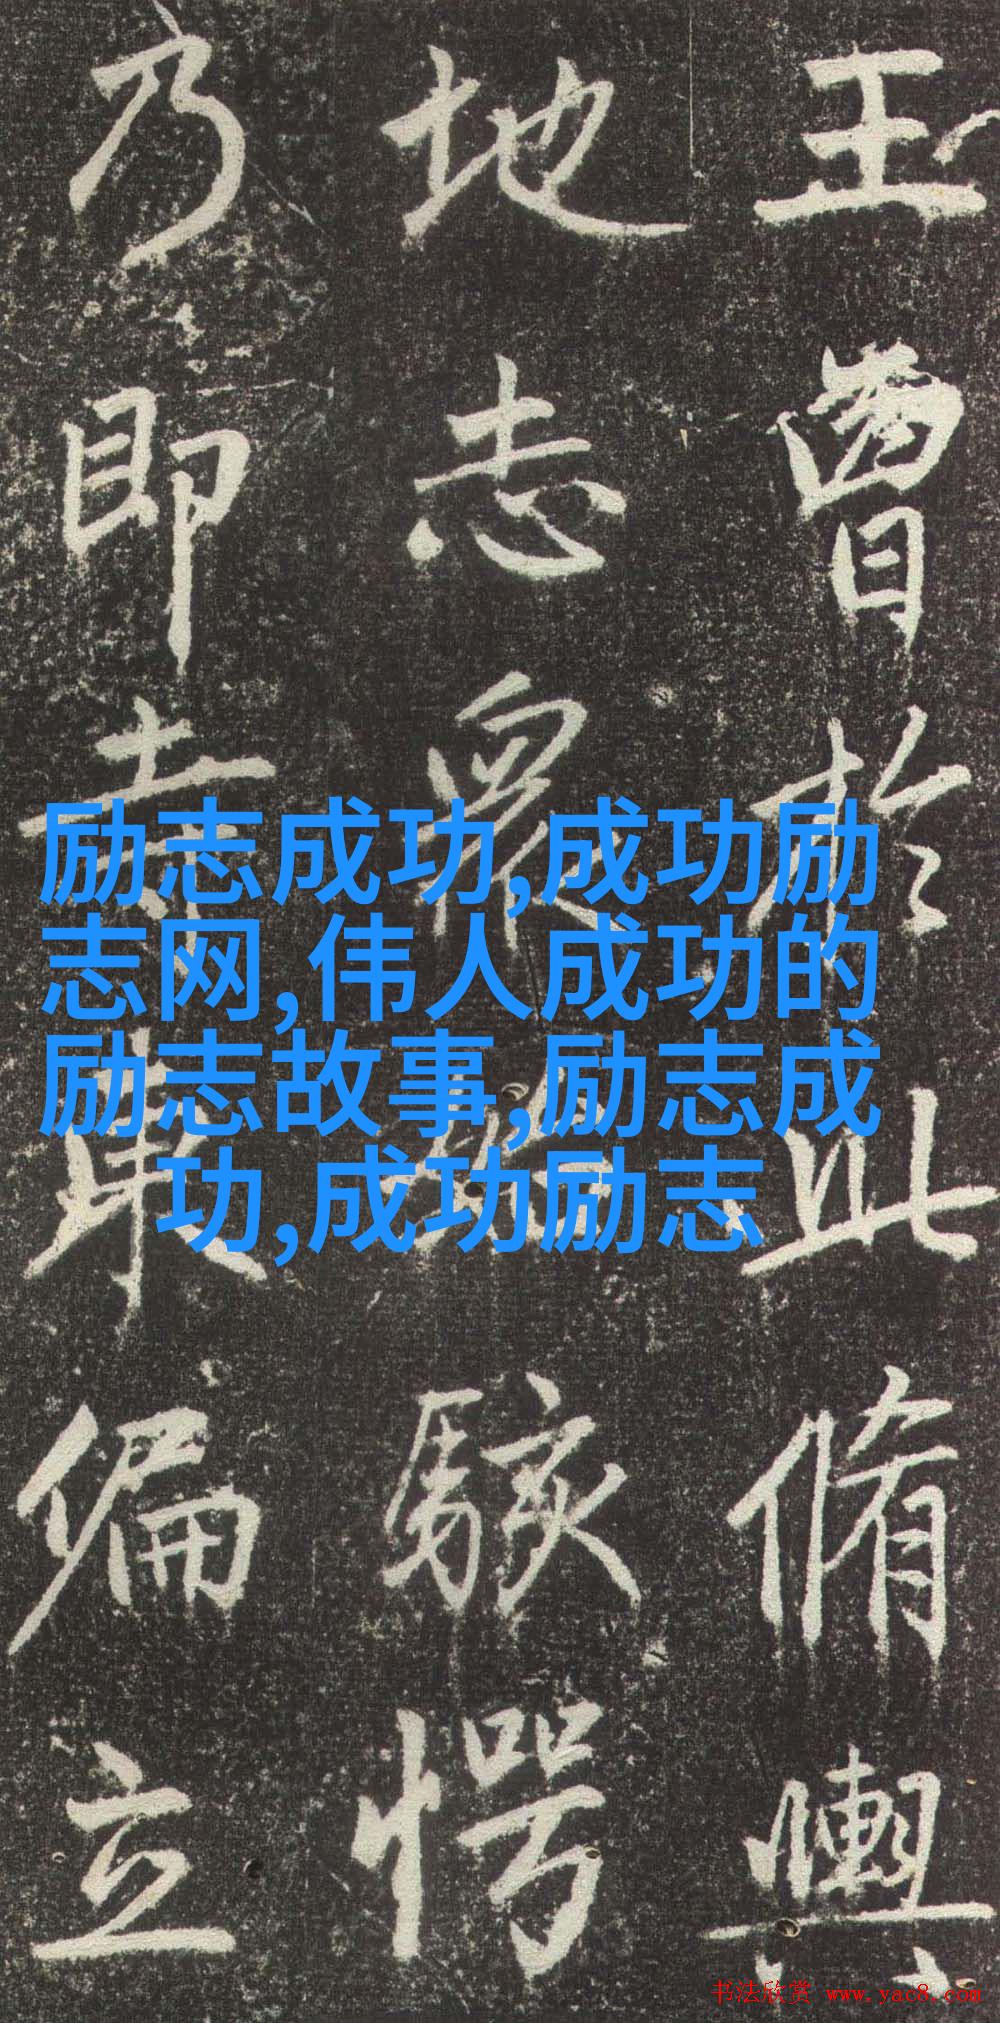 王曾於此脩輿
地志衆始駭愕
乃即寺東偏立
励志成功,成功励
志网,伟人成功的
励志故事,励志成
功,成功励志
书法欣赏 www.yac8.com